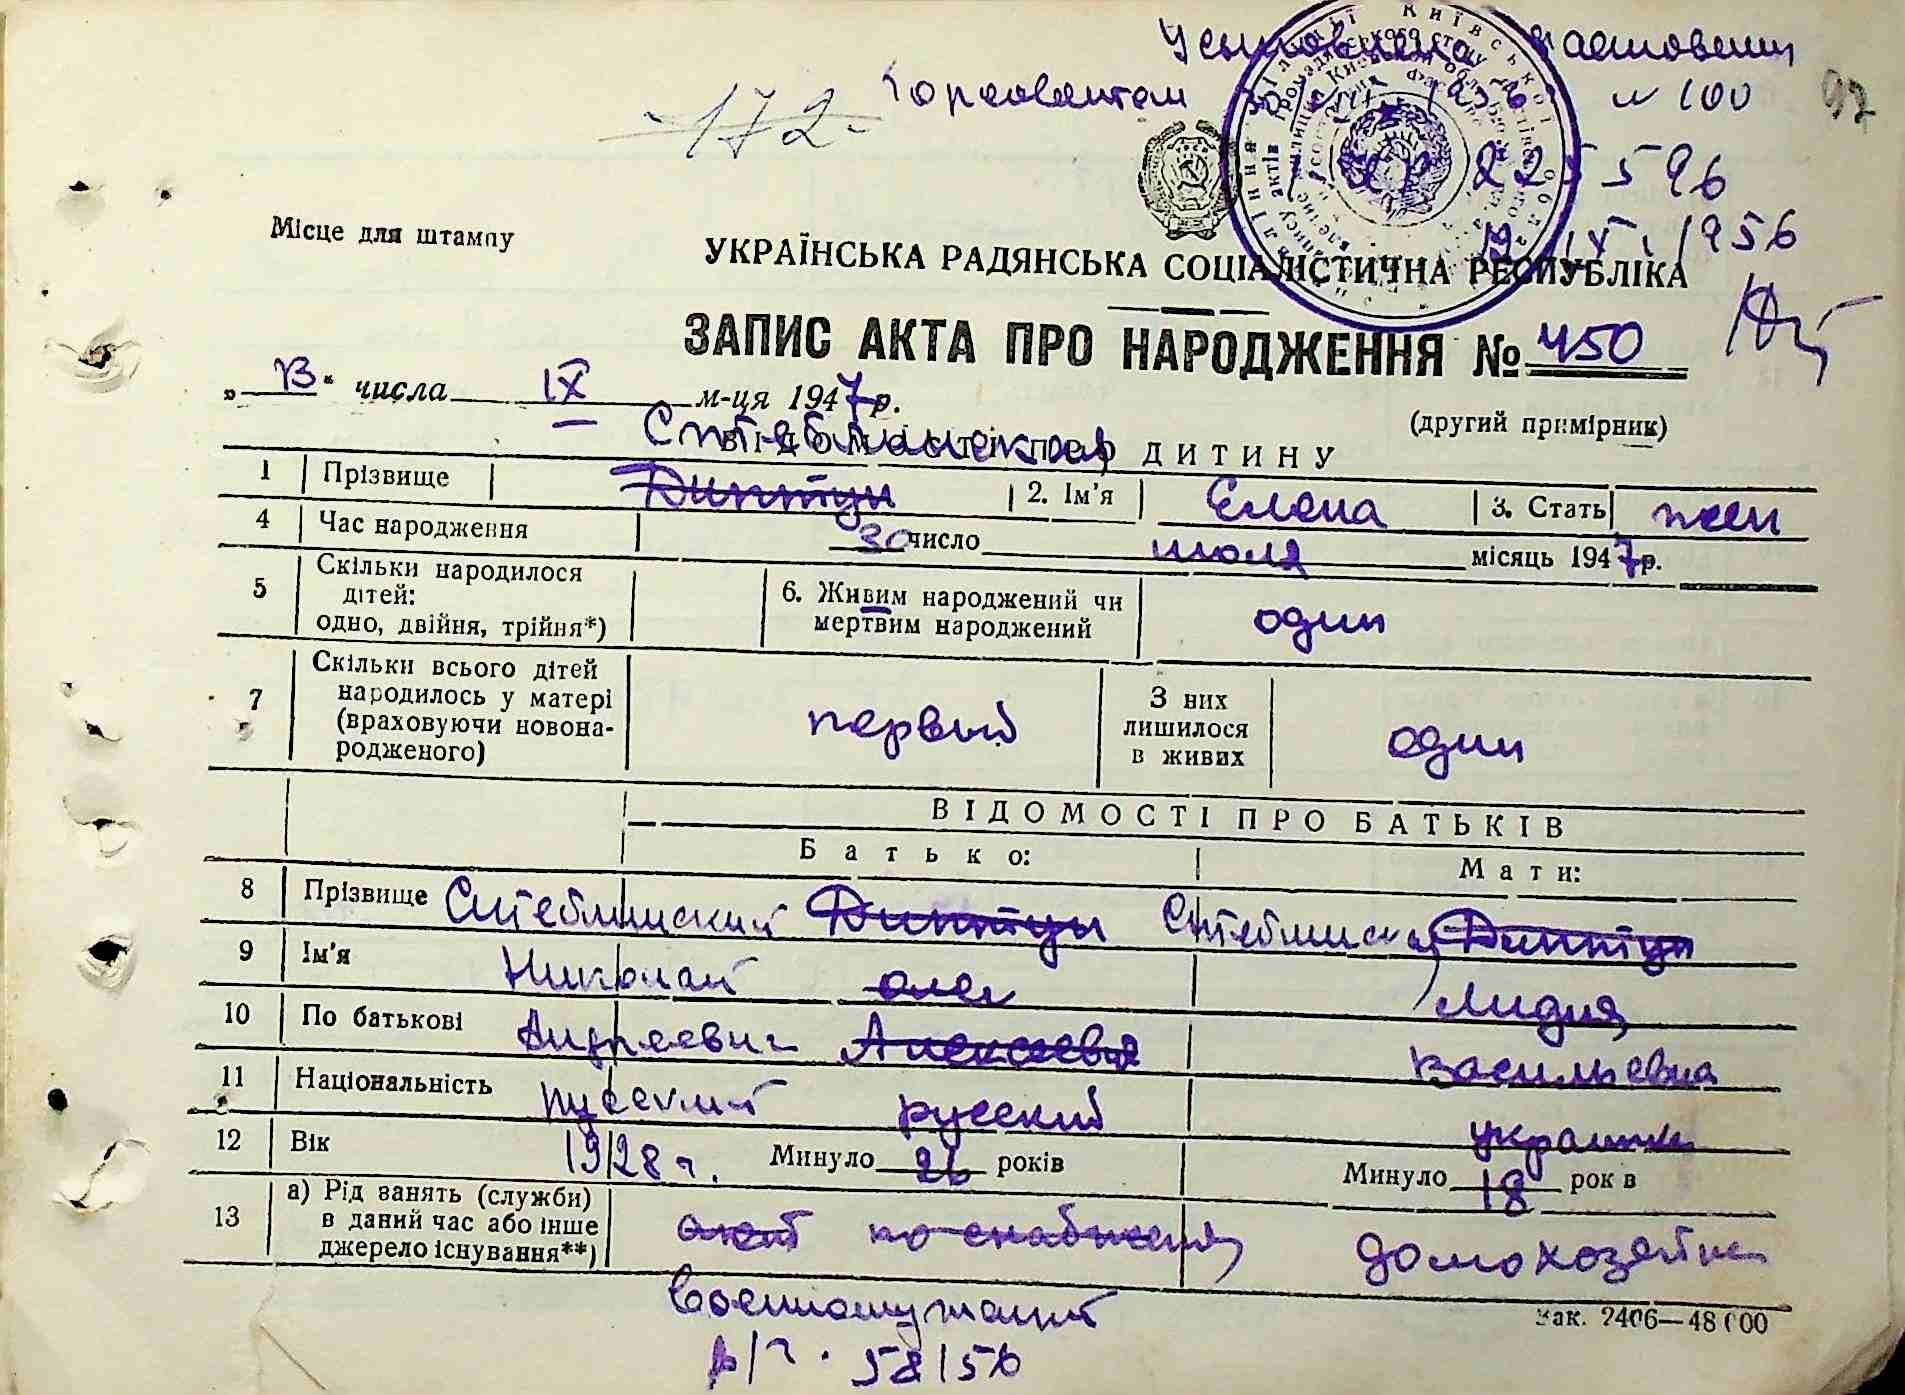 Усыновлена
Горсовета
№ 100
97
172
225596
IX 1956
Місце для штампу
УКРАЇНСЬКА РАДЯНСЬКА СОЦІАЛІСТИЧНА РЕСПУБЛІКА
ЗАПИС АКТА ПРО НАРОДЖЕННЯ № 450
„13“ числа IX м-ця 1947 р.
(другий примірник)
Стеблинская
ВІДОМОСТІ ПРО ДИТИНУ
1 Прізвище Диптун 2. Ім'я Елена 3. Стать жен
4 Час народження 30 число июля місяць 1947 р.
5 Скільки народилося дітей: одно, двійня, трійня*) 6. Живим народжений чи мертвим народжений один
7 Скільки всього дітей народилось у матері (враховуючи новонародженого) первый З них лишилося в живих один
ВІДОМОСТІ ПРО БАТЬКІВ
Батько: Мати:
8 Прізвище Стеблинский Диптун Стеблинская Диптун
9 Ім'я Николай Олег Лидия
10 По батькові Андреевич Алексеевич Васильевна
11 Національність русский русский украинка
12 Вік 1928 г. Минуло 26 років Минуло 18 рок в
13 а) Рід занять (служби) в даний час або інше джерело існування**) агент по снабжения домохозяйка
военнослужащий
58/56
Зак. 2406—48000